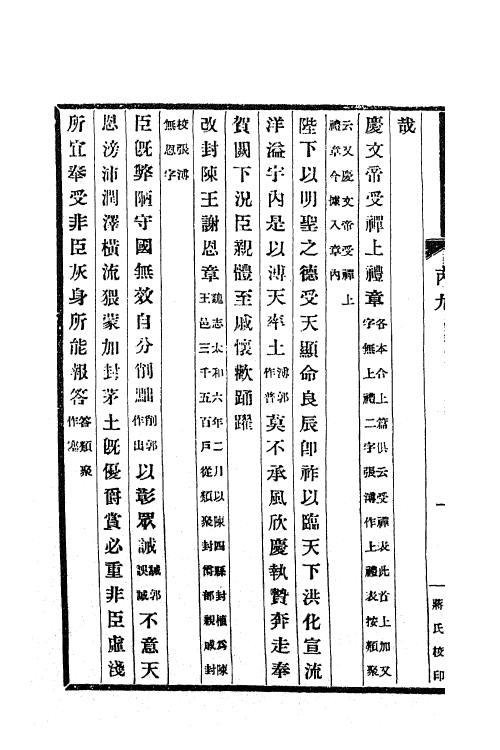 哉
慶文帝受禪上禮章各本合上篇俱云受禪表此首上加又字無上禮二字張溥作上禮表按類聚
云又慶文帝受禪上禮章今據入章內
陛下以明聖之德受天顯命良辰卽祚以臨天下洪化宣流
洋溢宇內是以溥天率土溥郭作普莫不承風欣慶執贄奔走奉
賀闕下況臣親體至戚懷歡踊躍
改封陳王謝恩章魏志太和六年二月以陳四縣封植爲陳王邑三千五百戶從類聚封爵部親戚封
校張溥無恩字
臣旣弊陋守國無效自分削黜削郭作出以彰眾誡誡郭誤誠不意天
恩滂沛潤澤橫流猥蒙加封茅土旣優爵賞必重非臣虛淺
所宜奉受非臣灰身所能報答答類聚作塞
蔣氏校印